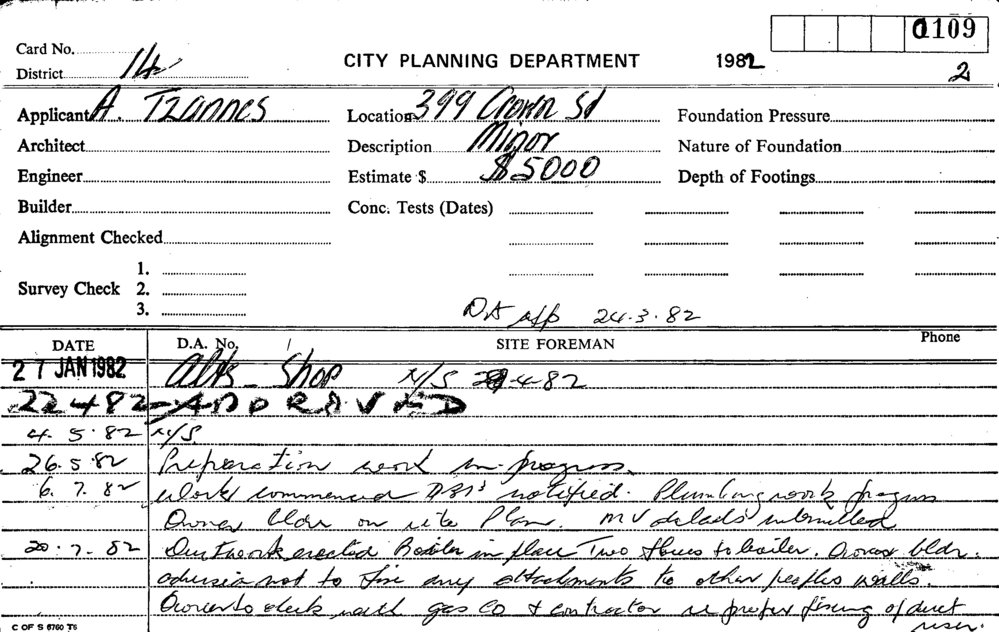 0109
Card No.
CITY PLANNING DEPARTMENT
1982
District 14
2
Applicant A. Tzannes
Location 399 Crown St
Foundation Pressure
Architect
Description Minor
Nature of Foundation
Engineer
Estimate $ $5000
Depth of Footings
Builder
Conc. Tests (Dates)
Alignment Checked
1.
Survey Check 2.
3.
DA app 24.3.82
DATE
D.A. No.
SITE FOREMAN
Phone
27 JAN 1982 Alts - Shop N/S 4-82
22 4 82 - APPROVED
4. 5. 82 N/S
26. 5 82 Preparation work in progress.
6. 7. 82 Work commenced notified. Plumbing work progress
Owner bldr on site Plans. MV details submitted
20. 7. 82 Ductwork erected Boiler in place Two flues to boiler. Owner bldr.
advised not to fix any attachments to other peoples walls.
Owner to check with gas Co & contractor re proper fixing of duct
riser.
C OF S 6760 T6